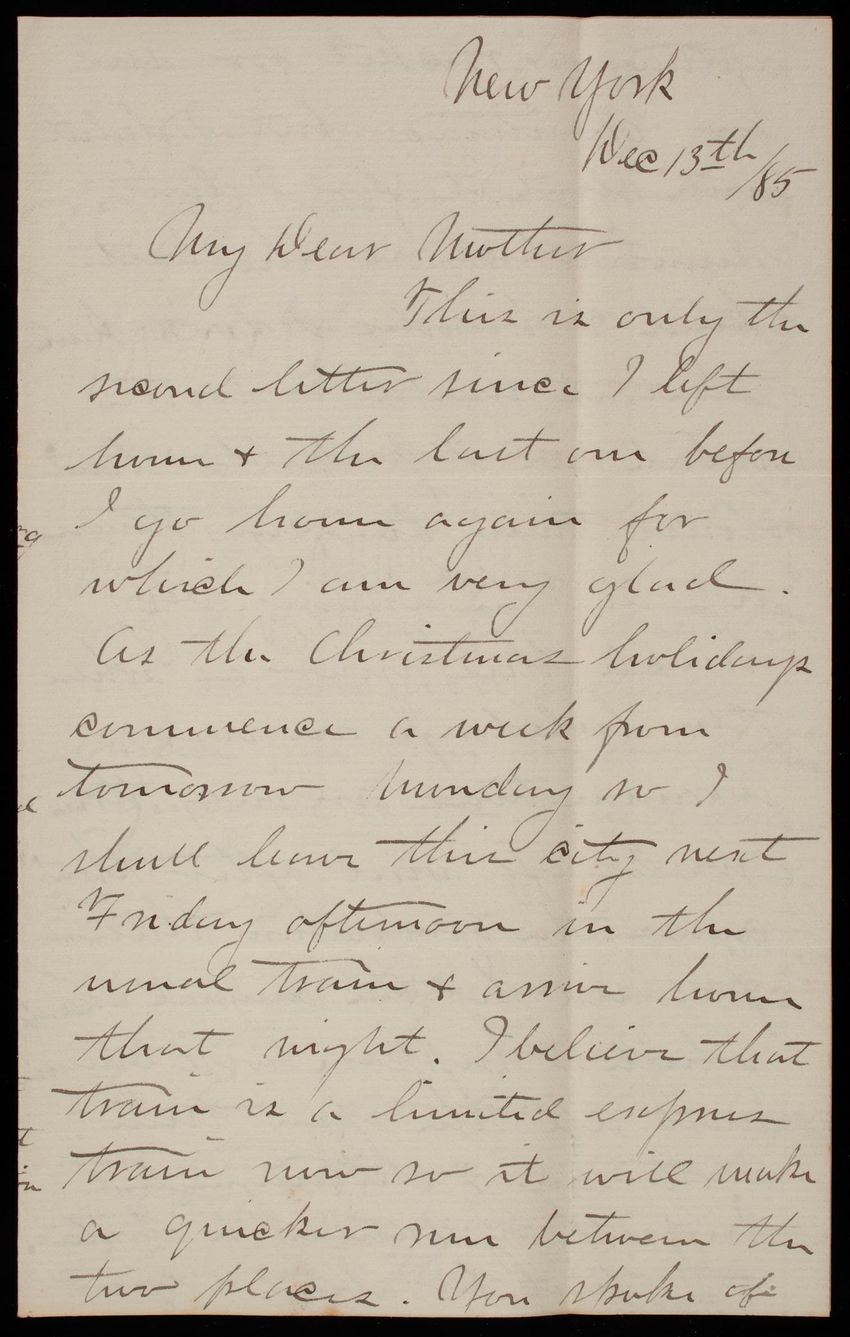 New York
Dec 13th /85
My Dear Mother
This is only the
second letter since I left
home + the last one before
I go home again for
which I am very glad.
As the Christmas holidays
commence a week from
tomorrow Monday so I
shall leave this city next
Friday afternoon in the
usual train + arrive home
that night. I believe that
train is a limited express
train now so it will make
a quicker run between the
two places. You spoke of